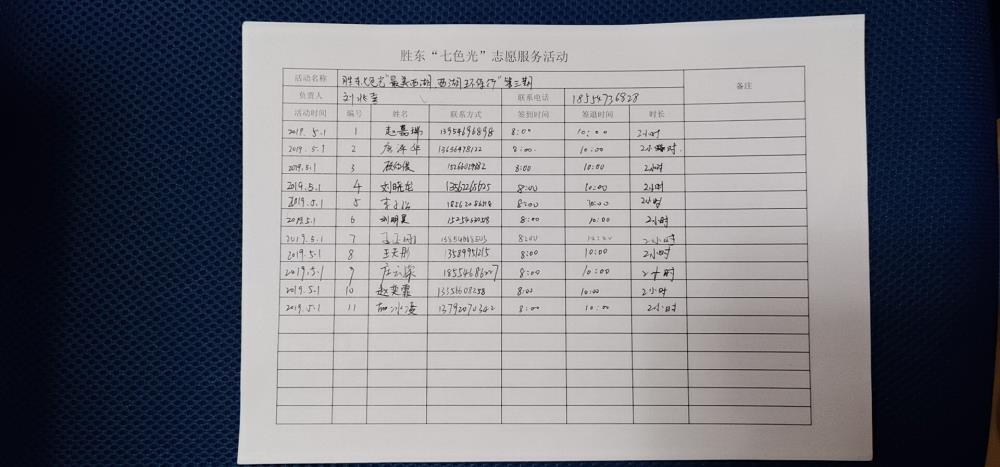 胜东“七色光”志愿服务活动
活动名称 胜东七色光"最美西湖 西湖环保行"第三期 备注
负责人 刘兆 联系电话 18554736828
活动时间 编号 姓名 联系方式 签到时间 签退时间 时长
2019.5.1 1 赵嘉 13954696898 8:00 10:00 2小时
2019.5.1 2 唐 华 13656478122 8:00 10:00 2小时
2019.5.1 3 8:00 10:00 2小时
2019.5.1 4 刘晓龙 13562265625 8:00 10:00 2小时
2019.5.1 5 8:00 10:00 2小时
2019.5.1 6 刘明昊 8:00 10:00 2小时
2019.5.1 7 8:00 10:00 2小时
2019.5.1 8 王天彤 13589951215 8:00 10:00 2小时
2019.5.1 9 庄云深 8:00 10:00 2小时
2019.5.1 10 赵奕霏 8:00 10:00 2小时
2019.5.1 11 冰凌 13792070342 8:00 10:00 2小时